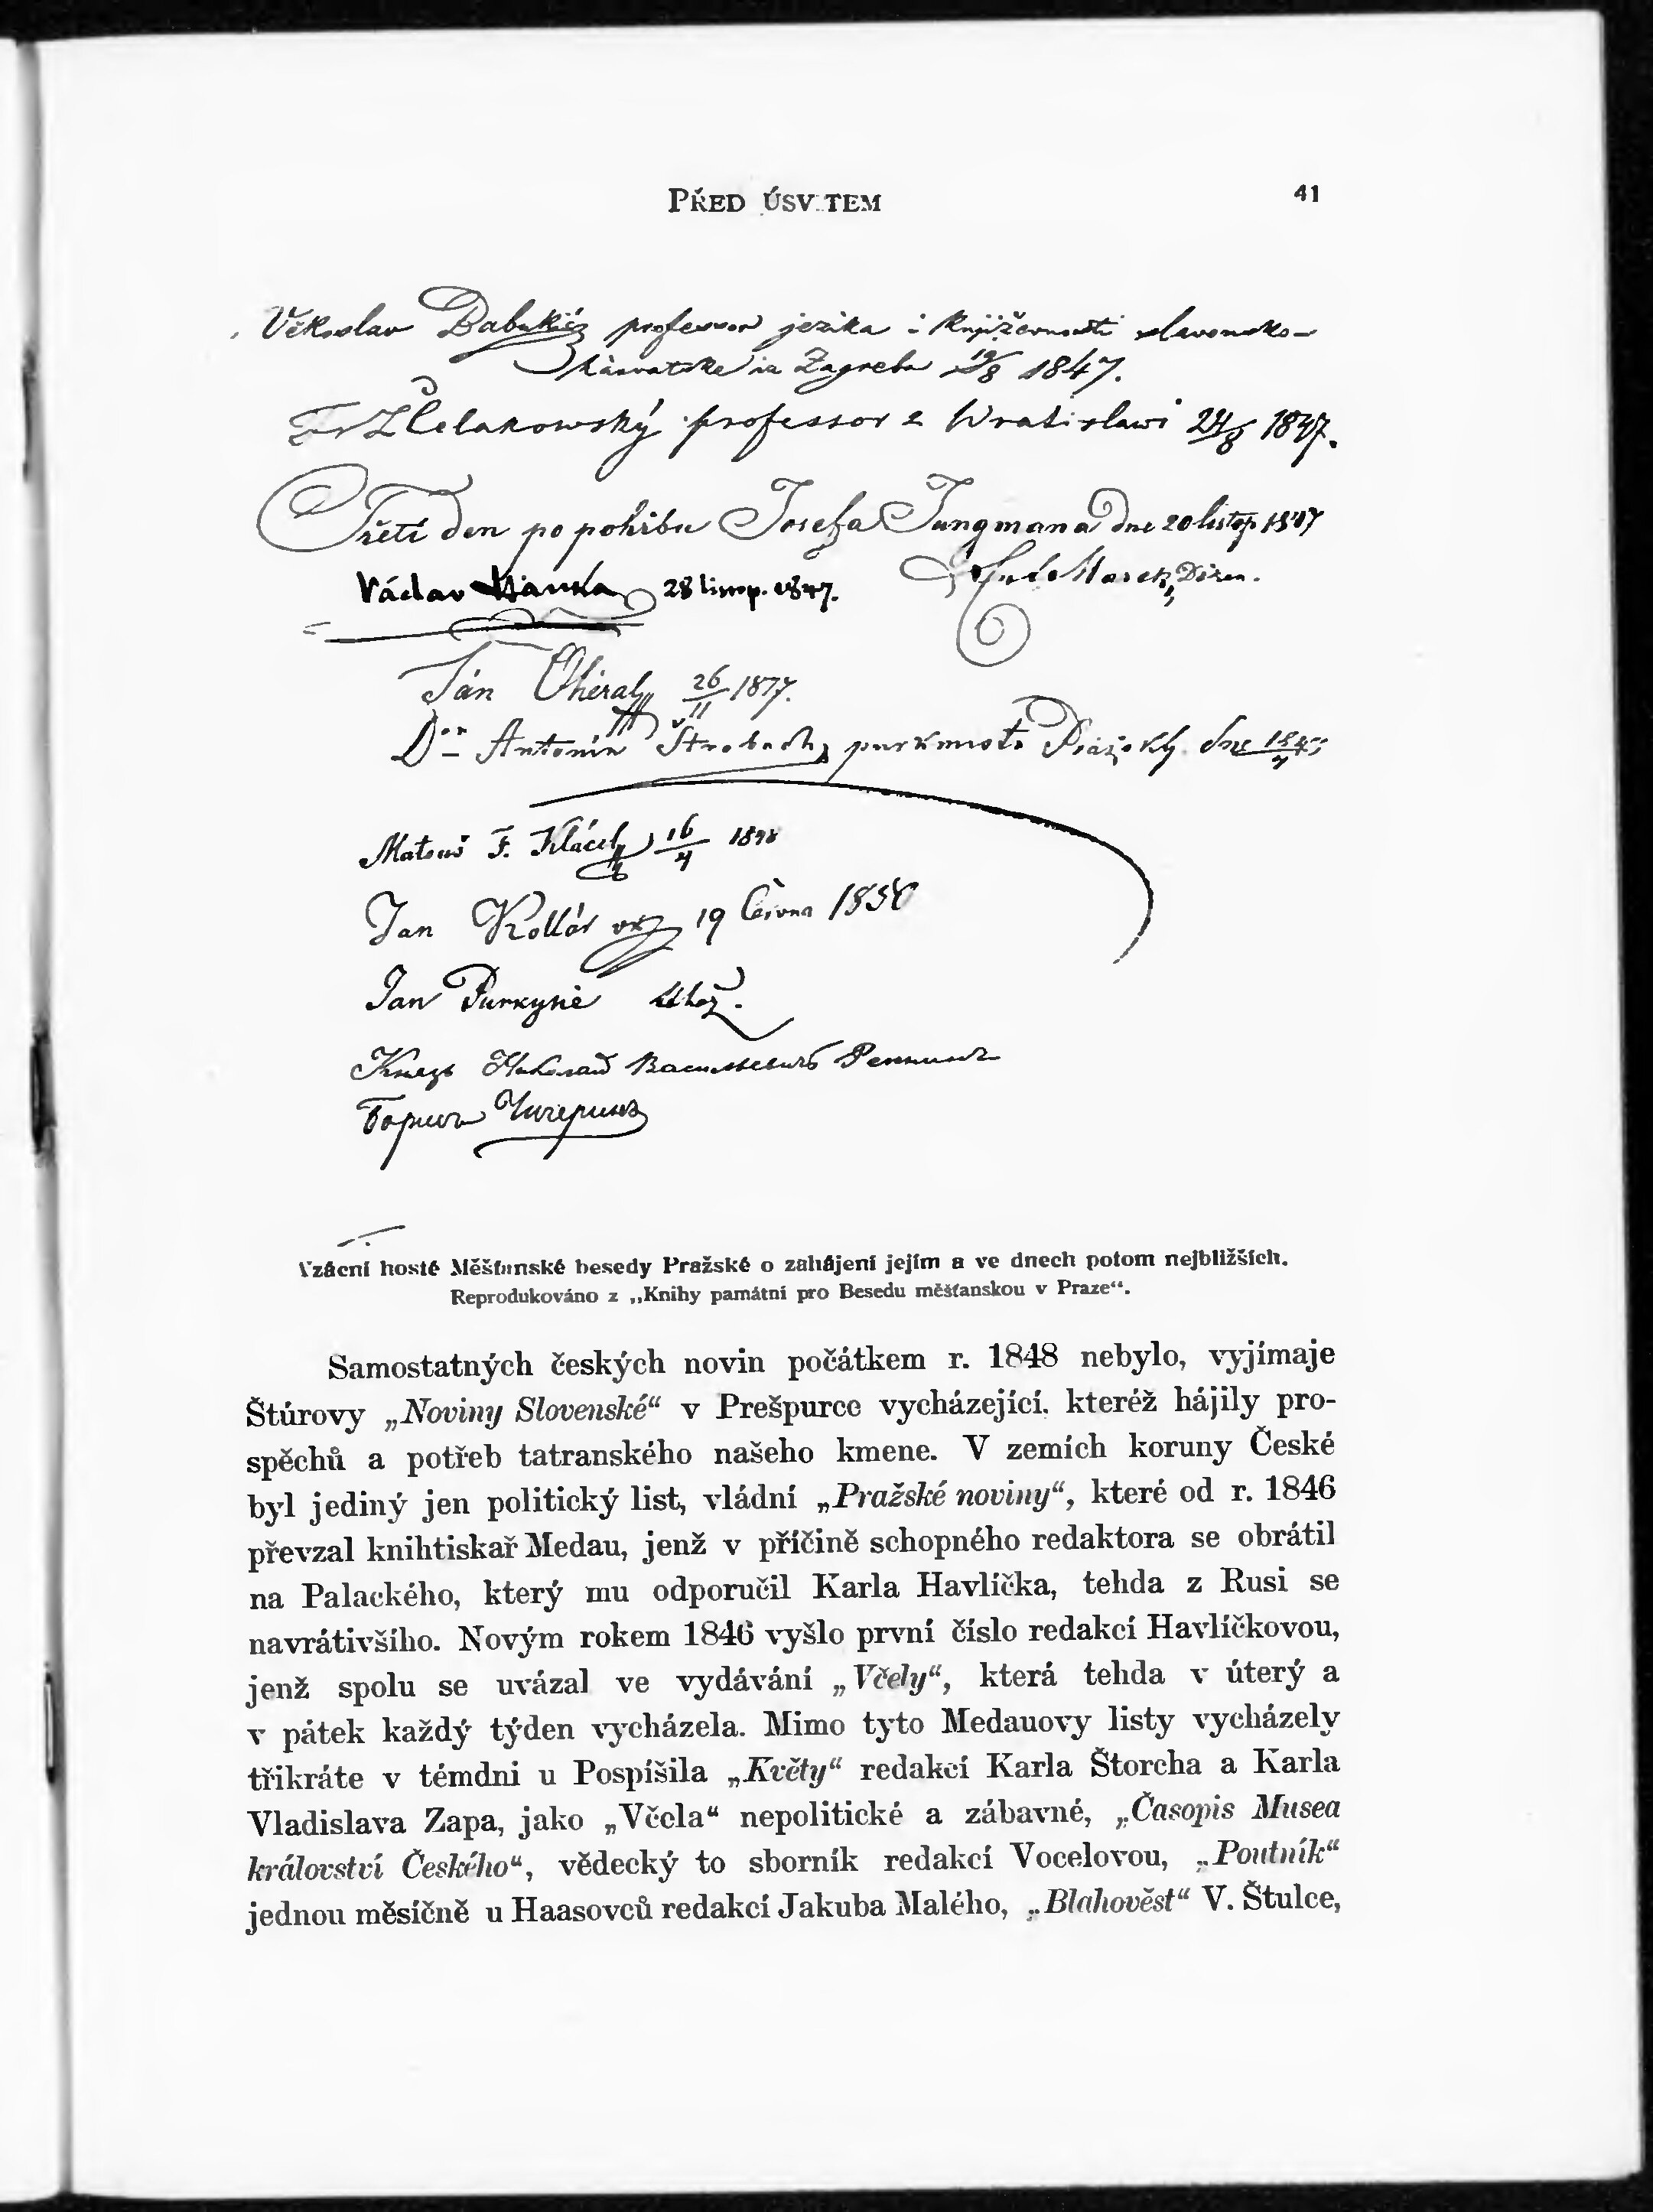 PŘED ÚSVITEM 41
Věkoslav Babukić professor jezika i književnosti slavonsko-
hàrvatske iz Zagreba 19/8 1847.
Fr L Čelakowský professor z Wratislawi 24/8 1847.
Třetí den po pohřbu Josefa Jungmana dne 20 listop 1847
Václav Hanka 28 listop. 1847.
Marek,
Ján Ohéral 26/11 1847.
Dr Antonín Strobach, purkmistr Pražský. dne
Matouš F. Klácel 16/4 1848
Jan Kollár 19 Června 1850
Jan Purkyně
Князь Николай Васильевичъ Репнинъ
Борисъ Чичеринъ
Vzácní hosté Měšťanské besedy Pražské o zahájení jejím a ve dnech potom nejbližších.
Reprodukováno z „Knihy památní pro Besedu měšťanskou v Praze“.
Samostatných českých novin počátkem r. 1848 nebylo, vyjímaje
Štúrovy „Noviny Slovenské“ v Prešpurce vycházející, kteréž hájily pro-
spěchů a potřeb tatranského našeho kmene. V zemích koruny České
byl jediný jen politický list, vládní „Pražské noviny“, které od r. 1846
převzal knihtiskař Medau, jenž v příčině schopného redaktora se obrátil
na Palackého, který mu odporučil Karla Havlíčka, tehda z Rusi se
navrátivšího. Novým rokem 1846 vyšlo první číslo redakcí Havlíčkovou,
jenž spolu se uvázal ve vydávání „Včely“, která tehda v úterý a
v pátek každý týden vycházela. Mimo tyto Medauovy listy vycházely
třikráte v témdni u Pospíšila „Květy“ redakcí Karla Štorcha a Karla
Vladislava Zapa, jako „Včela“ nepolitické a zábavné, „Časopis Musea
království Českého“, vědecký to sborník redakcí Vocelovou, „Poutník“
jednou měsíčně u Haasovců redakcí Jakuba Malého, „Blahověst“ V. Štulce,